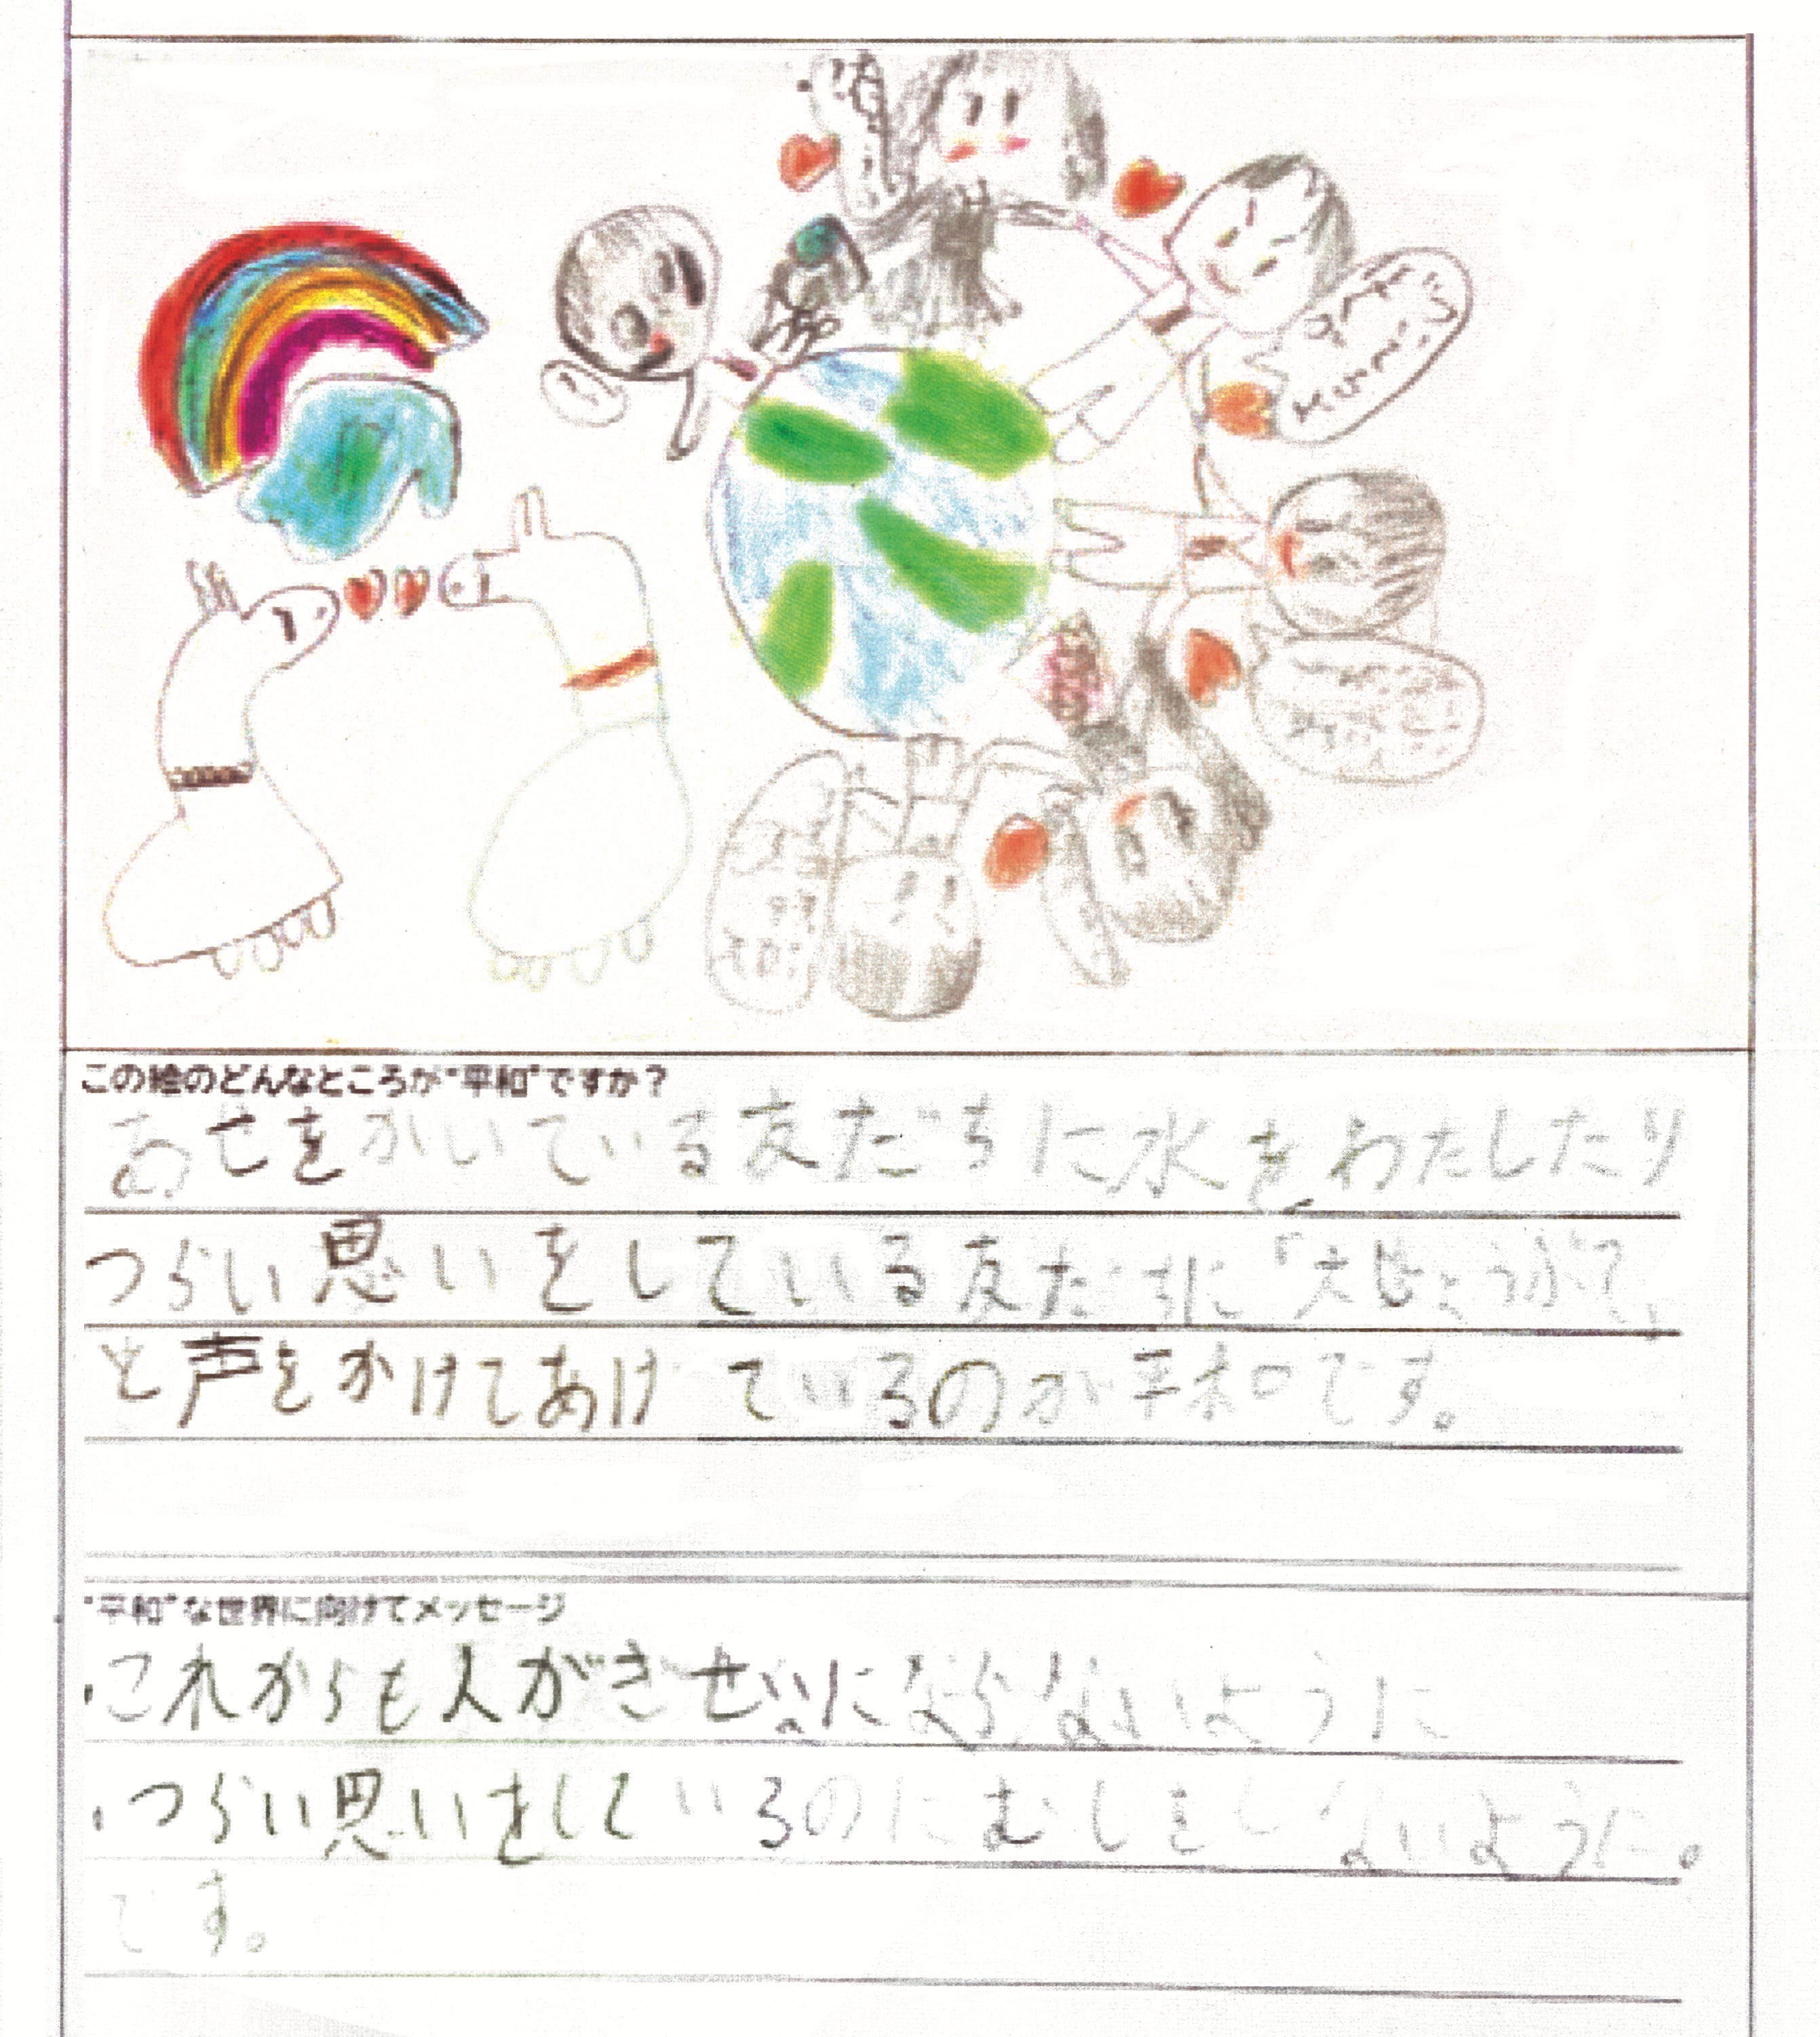 この絵のどんなところが"平和"ですか？
あせをかいている友だちに水をわたしたり
つらい思いをしている友だちに「大じょうぶ？」
と声をかけてあげているのが平和です。
"平和"な世界に向けてメッセージ
・これからも人がぎせいにならないように
・つらい思いをしているのにむしをしないように。
です。